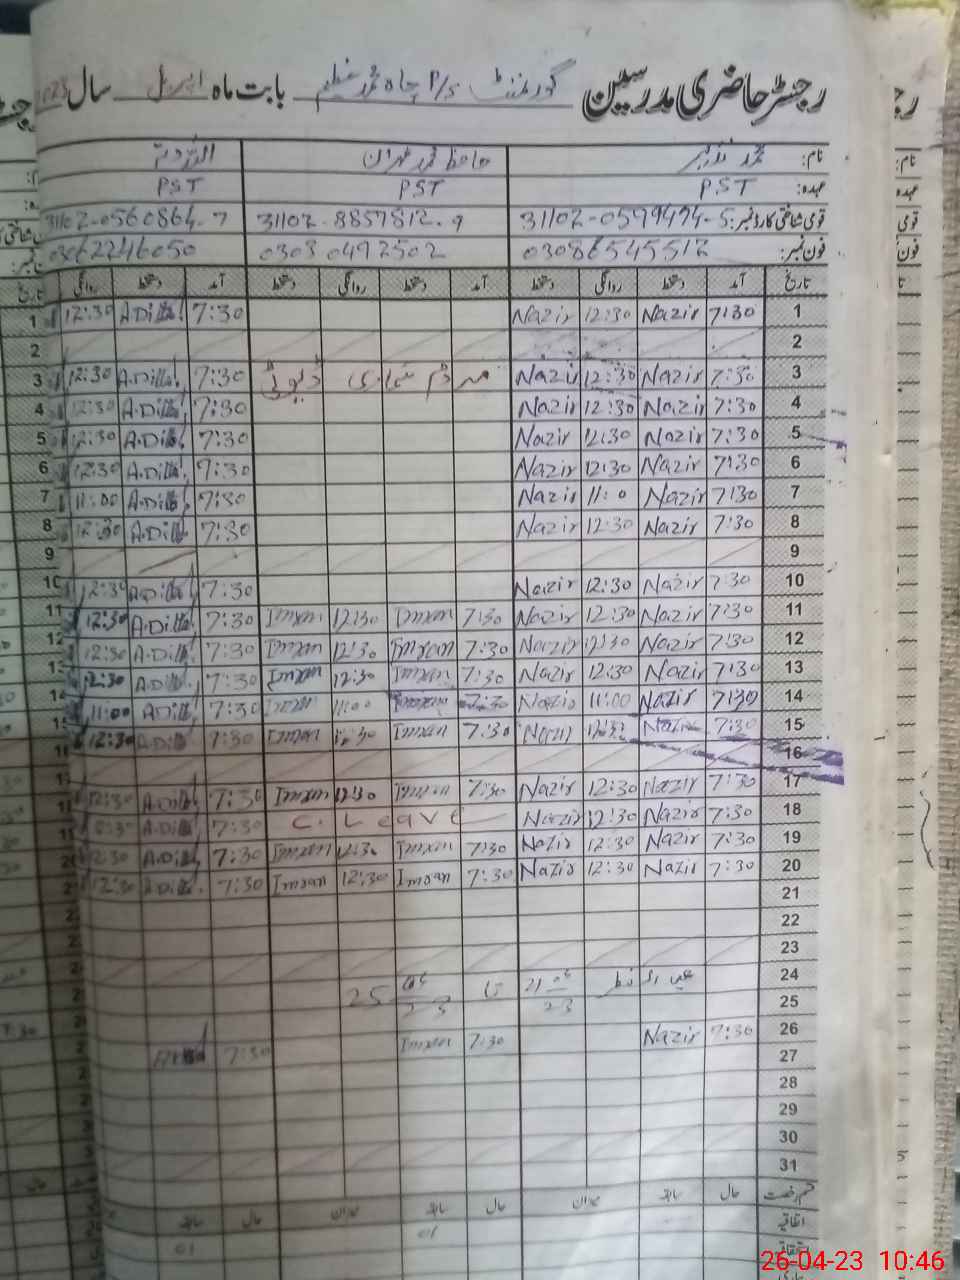 رجسٹر حاضری مدرسین گورنمنٹ P/S چاہ محمد عظیم بابت ماہ اپریل سال 2023
نام: محمد نذیر حافظ محمد عمران اللہ دتہ
عہدہ: PST PST PST
قومی شناختی کارڈ نمبر: 31102-0599494-5 31102-8857812-9 31102-0560864-7
فون نمبر: 03086545512 0303 0492502 03062246050
تاریخ آمد دستخط روانگی دستخط آمد دستخط روانگی دستخط آمد دستخط روانگی
1 7:30 Nazir 12:30 Nazir 7:30 A.Ditta 12:30
2
3 7:30 Nazir 12:30 Nazir مردم شماری ڈیوٹی 7:30 A.Ditta 12:30
4 7:30 Nazir 12:30 Nazir 7:30 A.Ditta 12:30
5 7:30 Nazir 12:30 Nazir 7:30 A.Ditta 12:30
6 7:30 Nazir 12:30 Nazir 7:30 A.Ditta 12:30
7 7:30 Nazir 11:0 Nazir 7:30 A.Ditta 11:00
8 7:30 Nazir 12:30 Nazir 7:30 A.Ditta 12:30
9
10 7:30 Nazir 12:30 Nazir 7:30 A.Ditta 12:30
11 7:30 Nazir 12:30 Nazir 7:30 Imran 12:30 Imran 7:30 A.Ditta 12:30
12 7:30 Nazir 12:30 Nazir 7:30 Imran 12:30 Imran 7:30 A.Ditta 12:30
13 7:30 Nazir 12:30 Nazir 7:30 Imran 12:30 Imran 7:30 A.Ditta 12:30
14 7:30 Nazir 11:00 Nazir 7:30 Imran 11:00 Imran 7:30 A.Ditta 11:00
15 7:30 Nazir 12:30 Nazir 7:30 Imran 12:30 Imran 7:30 A.Ditta 12:30
16
17 7:30 Nazir 12:30 Nazir 7:30 Imran 12:30 Imran 7:30 A.Ditta 12:30
18 7:30 Nazir 12:30 Nazir C. Leave 7:30 A.Ditta 12:30
19 7:30 Nazir 12:30 Nazir 7:30 Imran 12:30 Imran 7:30 A.Ditta 12:30
20 7:30 Nazir 12:30 Nazir 7:30 Imran 12:30 Imran 7:30 A.Ditta 12:30
21
22
23
24 عید الفطر 21 04/23 تا 25 04/23
25
26 7:30 Nazir 7:30 Imran 7:30
27
28
29
30
31
قسم رخصت حال سابقہ میزان حال سابقہ میزان حال سابقہ
اتفاقیہ 01
01
26-04-23 10:46